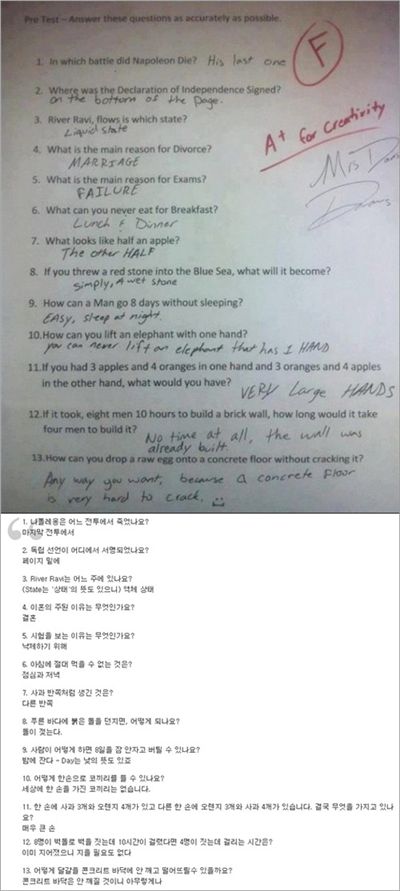 Pre Test – Answer these questions as accurately as possible.
F
1. In which battle did Napoleon Die? His last one
2. Where was the Declaration of Independence Signed?
on the bottom of the page.
3. River Ravi, flows is which state?
Liquid state
A+ for Creativity
4. What is the main reason for Divorce?
MARRIAGE
Mrs
5. What is the main reason for Exams?
FAILURE
6. What can you never eat for Breakfast?
Lunch & Dinner
7. What looks like half an apple?
The other HALF
8. If you threw a red stone into the Blue Sea, what will it become?
simply, A wet stone
9. How can a Man go 8 days without sleeping?
EASY, sleep at night.
10. How can you lift an elephant with one hand?
you can never lift an elephant that has 1 HAND
11. If you had 3 apples and 4 oranges in one hand and 3 oranges and 4 apples
in the other hand, what would you have?
VERY Large HANDS
12. If it took, eight men 10 hours to build a brick wall, how long would it take
four men to build it?
No time at all, the wall was
already built.
13. How can you drop a raw egg onto a concrete floor without cracking it?
Any way you want, because a concrete floor
is very hard to crack.
1. 나폴레옹은 어느 전투에서 죽었나요?
마지막 전투에서
2. 독립 선언이 어디에서 서명되었나요?
페이지 밑에
3. River Ravi는 어느 주에 있나요?
(State는 '상태'의 뜻도 있으니) 액체 상태
4. 이혼의 주된 이유는 무엇인가요?
결혼
5. 시험을 보는 이유는 무엇인가요?
낙제하기 위해
6. 아침에 절대 먹을 수 없는 것은?
점심과 저녁
7. 사과 반쪽처럼 생긴 것은?
다른 반쪽
8. 푸른 바다에 붉은 돌을 던지면, 어떻게 되나요?
돌이 젖는다.
9. 사람이 어떻게 하면 8일을 잠 안자고 버틸 수 있나요?
밤에 잔다 - Day는 낮의 뜻도 있죠
10. 어떻게 한손으로 코끼리를 들 수 있나요?
세상에 한 손을 가진 코끼리는 없습니다.
11. 한 손에 사과 3개와 오렌지 4개가 있고 다른 한 손에 오렌지 3개와 사과 4개가 있습니다. 결국 무엇을 가지고 있나
요?
매우 큰 손
12. 8명이 벽돌로 벽을 짓는데 10시간이 걸렸다면 4명이 짓는데 걸리는 시간은?
이미 지어졌으니 지을 필요도 없다
13. 어떻게 달걀을 콘크리트 바닥에 안 깨고 떨어뜨릴수 있을까요?
콘크리트 바닥은 안 깨질 것이니 아무렇게나